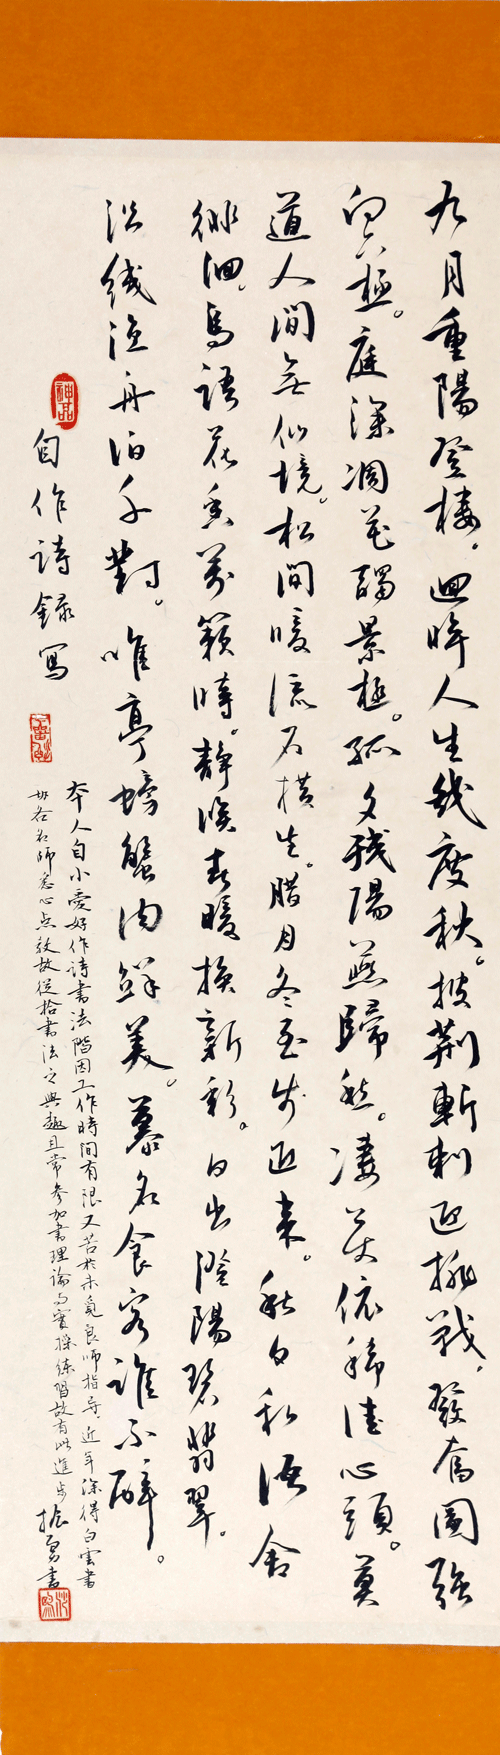 九月重陽登樓，迴眸人生幾度秋。披荊斬刺迎挑戰，發奮圖強
向北極。庭深凋花醑景極。孤夕殘陽燕歸愁。淒 依稀 心頭。莫
道人間無仙境。松間暖流石橫生。腊月冬至步迎來。秋夕私語舍
徘徊。鳥語花香萬籟時。靜候春暖換新彩。日出隆陽碧翡翠。
江線漁舟泊千對。唯亭螃蟹肉鮮美。慕名食客誰不醉。
神品
自作詩錄寫
本人自小愛好作詩書法階因工作時間有限又苦於未覓良師指導，近年深得白雲書
各名師悉心点教故從拾書法之興趣且常參加書理論与實操練習故有此進步 書